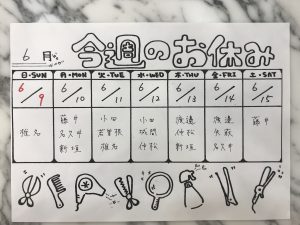 6月
今週のお休み
日・SUN 月・MON 火・TUE 水・WED 木・THU 金・FRI 土・SAT
6/9 6/10 6/11 6/12 6/13 6/14 6/15
藤井 小田 小田 渡邉 渡邉 藤井
椎名 名久井 若曽根 城間 仲松 矢萩
新垣 椎名 仲松 新垣 名久井